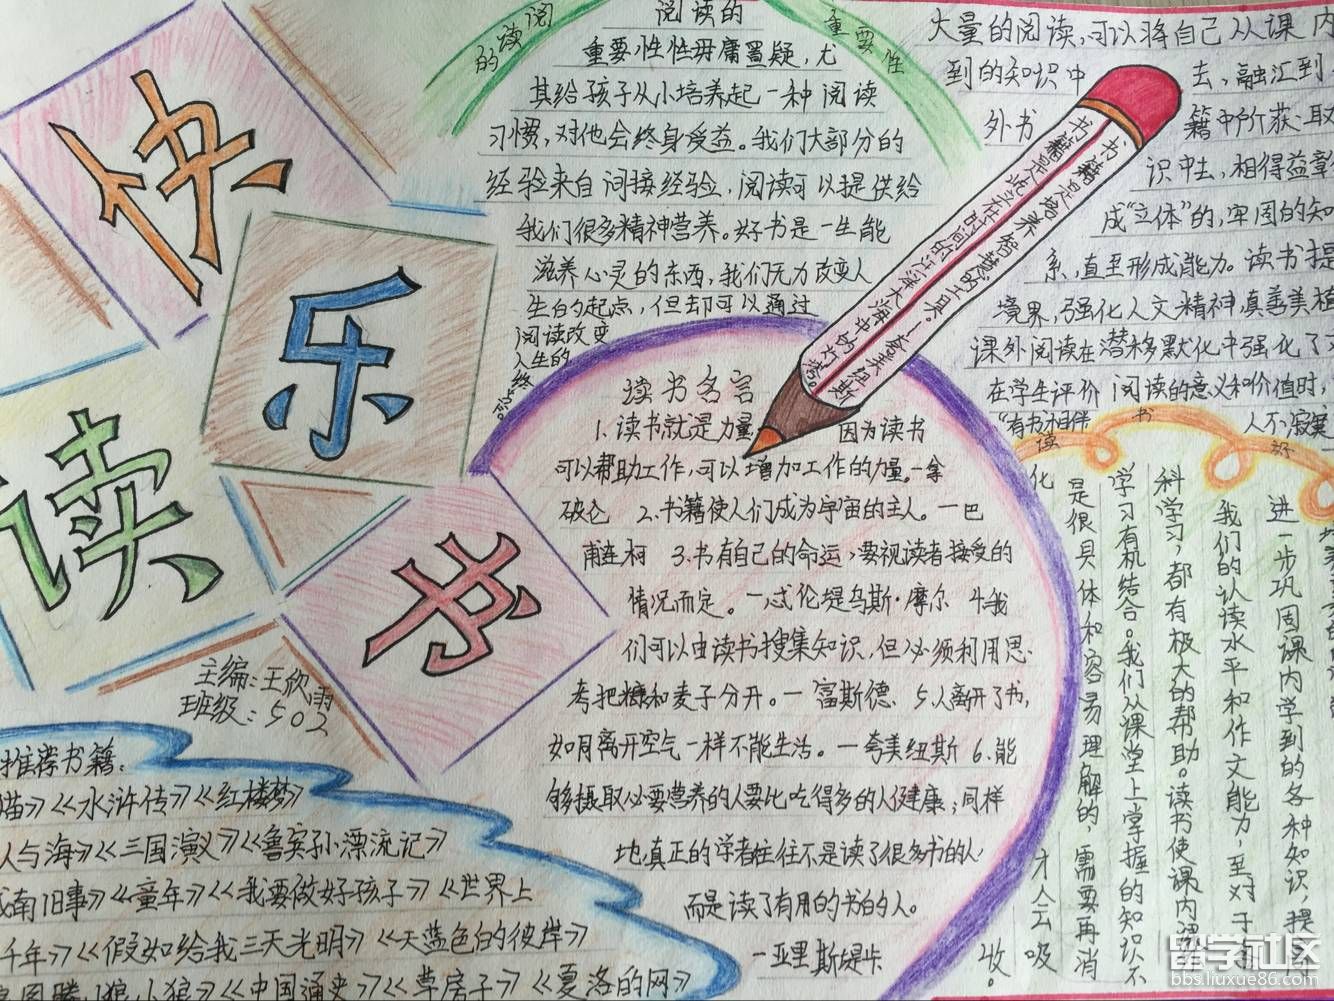 快
乐
读
书
主编:王欣雨
班级:502
阅读的
重要性
阅读的
重要性性毋庸置疑,尤
其给孩子从小培养起一种阅读
习惯,对他会终身受益。我们大部分的
经验来自间接经验,阅读可以提供给
我们很多精神营养。好书是一生能
滋养心灵的东西,我们无力改变人
生白的起点,但却可以通过
阅读改变
人生的
终点。
大量的阅读,可以将自己从课内
到的知识中 去,融汇到
外书 籍中所获取
识中去,相得益彰
成“立体”的,牢固的知
系,直至形成能力。读书提
境界,强化人文精神,真善美植
课外阅读在潜移默化中强化了
在学生评价阅读的意义和价值时,
“有书相伴 人不寂寞
书籍是培养智慧的工具。—夸美纽斯
书籍是屹立在时间的汪洋大海中的灯塔。
读书名言
1.读书就是力量 因为读书
可以帮助工作,可以增加工作的力量。—拿
破仑 2.书籍使人们成为宇宙的主人。—巴
甫连柯 3.书有自己的命运,要视读者接受的
情况而定。—忒伦提乌斯·摩尔 4我
们可以由读书搜集知识,但必须利用思
考把糠和麦子分开。—富斯德、5.人离开了书,
如同离开空气一样不能生活。—夸美纽斯 6.能
够摄取必要营养的人要比吃得多的人健康;同样
地真正的学者往往不是读了很多书的人
而是读了有用的书的人。
—亚里斯提卡
读 书 好
进一步巩固课内学到的各种知识,提
我们的认读水平和作文能力,至对于
科学习,都有极大的帮助。读书使课内
学习有机结合。我们从课堂上掌握的知识不
是很具体和容易理解的,需要再消
化
才会吸
收。
推荐书籍:
猫》《水浒传》《红楼梦》
人与海》《三国演义》《鲁宾孙漂流记》
城南旧事》《童年》《我要做好孩子》《世界上
千年》《假如给我三天光明》《天蓝色的彼岸》
狼图腾,小狼小狼》《中国通史》《草房子》《夏洛的网》
留学社区
bbs.liuxue86.com